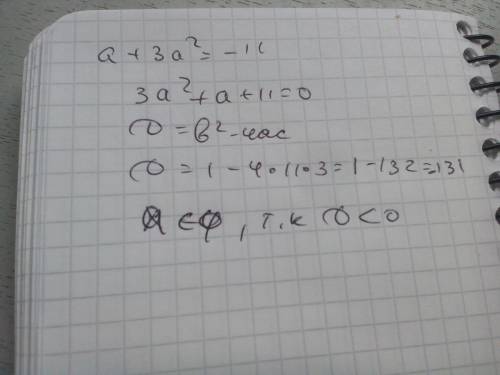 a + 3a² = -11
3a² + a + 11 = 0
D = b² - 4ac
D = 1 - 4·11·3 = 1 - 132 = 131
a ∈ φ, т.к D < 0